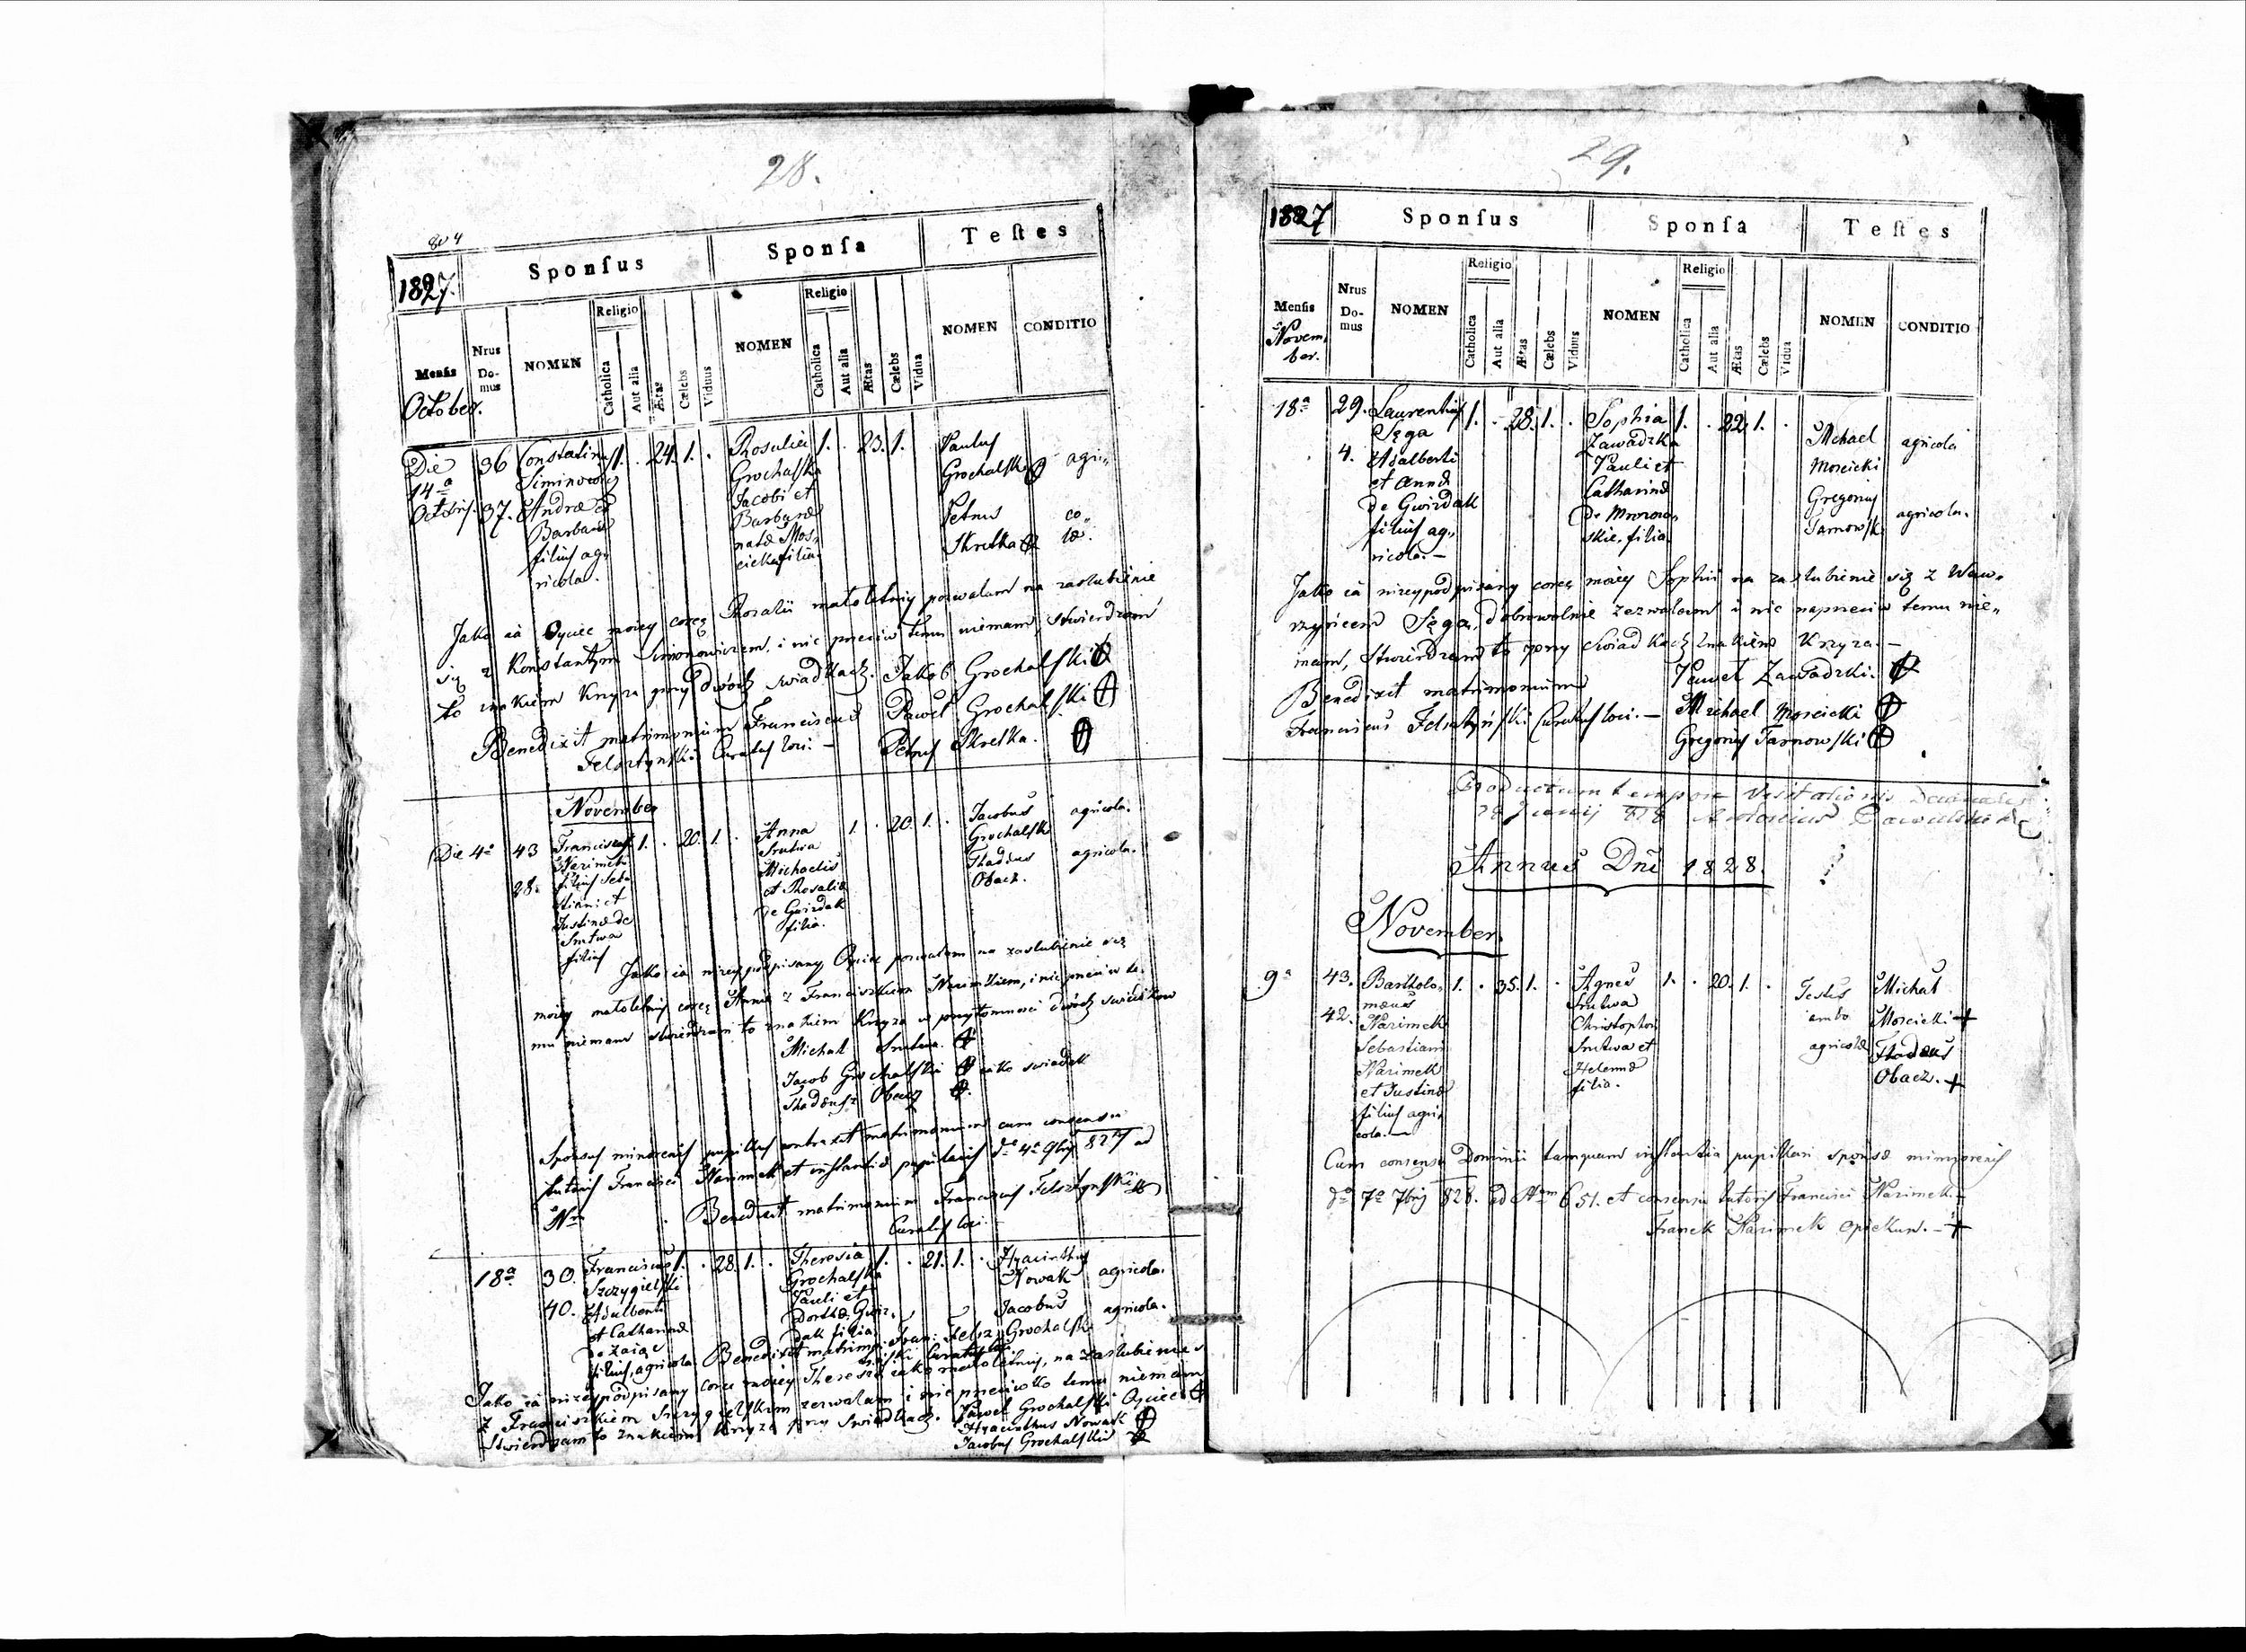 28.
804
1827.
Sponſus
Sponſa
Teſtes
Menſis
October.
Nrus Do-mus
NOMEN
Religio
Catholica
Aut alia
Ætas
Cælebs
Viduus
NOMEN
Religio
Catholica
Aut alia
Ætas
Cælebs
Vidua
NOMEN
CONDITIO
Die 36 Constantinus 1. . 24. 1. . Rosalia 1. . 23. 1. Paulus
14a Siminowicz Grochalska Grochalski agri„
Octobris. 37. Andreæ et Jacobi et
Barbaræ Barbaræ Petrus co„
filius ag„ natæ Mos„ Skretka læ.
ricola. cicka filia
Jako ia Oyciec moiey corcę Rosalii małoletniey pozwalam na zaslubienie
się z Konstantym Simonowiczem, i nic przeciw temu niemam, stwierdzam
to znakiem Krzyza przy dwóch swiadkach. Jakob Grochalski
Benedixit matrimonium Franciscus Paweł Grochalski
Felsztynski Curatus loci. — Petrus Skretka.
November
Die 4a 43 Franciscus 1. . 20. 1. . Anna 1. . 20. 1. . Jacobus agricola.
Narimek Smtwa Grochalski
28. filius Seba Michaelis Thadeus agricola.
stiani et et Rosaliæ Obacz.
Justinæ de de Gwizdak
Smtwa filia.
filius
Jako ia nizey podpisany Oyciec pozwalam na zaslubienie się
moiey małoletniey corcę Annie z Franciszkiem Narimkiem, i nic przeciw te„
mu niemam stwierdzam to znakiem Krzyza w przytomnosci dwóch swiadkow
Michał Smtwa.
Jacob Grochalski iako swiadek
Thadeusz Obacz
Sponsus minorenis pupillus contraxit matrimonium cum consensu
tutoris Francisci Narimek, et instantiæ pupilaris do 4a 9bris 827 ad
Nm . Benedixit matrimonium Franciscus Felsztynski
Curatus loci.
18a 30. Franciscus 1. . 28. 1. . Theresia 1. . 21. 1. . Hyacinthus
Szczygielski Grochalska Nowak agricola.
40. Adalberti Pauli et Jacobus agricola.
et Catharinæ Dorothæ Gwiz„ Grochalski
de Zaiąc dak filia.
filius, agricola. Benedixit matrim: Fran: Felsz„
tynski Curatus loci
Jako ia nizey podpisany corce moiey Theresie iako małoletniey, na zaslubienie
z Franciszkiem Szczygielskim zezwalam i nic przeciwko temu niemam
stwierdzam to znakiem Krzyza przy swiadkach. Paweł Grochalski Oyciec
Hyacinthus Nowak
Jacobus Grochalski
29.
1827
Sponſus
Sponſa
Teſtes
Menſis
November.
Nrus Do-mus
NOMEN
Religio
Catholica
Aut alia
Ætas
Cælebs
Viduus
NOMEN
Religio
Catholica
Aut alia
Ætas
Cælebs
Vidua
NOMEN
CONDITIO
18a 29. Laurentius 1. . 28. 1. . Sophia 1. . 22. 1. . Michael agricola
Sęga Zawadzka Moscicki
4. Adalberti Pauli et Gregorius
et Annæ Catharinæ Tarnowski agricola.
de Gwizdak de Mrozow„
filius ag„ skie, filia.
ricola. —
Jako ia nizey podpisany corcę moiey Sophii na zaslubienie się z Waw„
rzyńcem Sęga, dobrowolnie zezwalam i nic naprzeciw temu nie„
mam, stwierdzam to przy swiadkach znakiem Krzyza. —
Benedixit matrimonium Paweł Zawadzki.
Franciscus Felsztyński Curatus loci. — Michael Moscicki
Gregorius Tarnowski
Productum tempore Visitationis Decanalis
28 Junij 828 Antonius
Annus Dni 1828.
November
9a 43. Bartholo„ 1. . 35. 1. . Agnes 1. . 20. 1. . Testes Michał
mæus Smtwa ambo Moscicki +
42. Narimek Christophori agricolæ Thadeus
Sebastiani Smtwa et Obacz. +
Narimek Helennæ
et Justinæ filia.
filius agri„
cola. —
Cum consensu Dominii tamquam instantia pupillari sponsæ minorenis
do 7a 7bris 828. ad Num 651. et consensu tutoris Francisci Narimek. —
Franek Narimek opiekun. — +